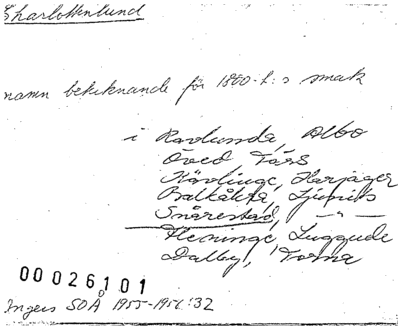 Charlottenlund
namn betecknande för 1800-t:s smak
i Ravlunda, Albo
Öved, Färs
Kävlinge, Harjager
Balkåkra, Ljunits
Snårestad, —"—
Fleninge, Luggude
Dalby, Torna
00026101
Ingers SOÅ 1955-1956:32